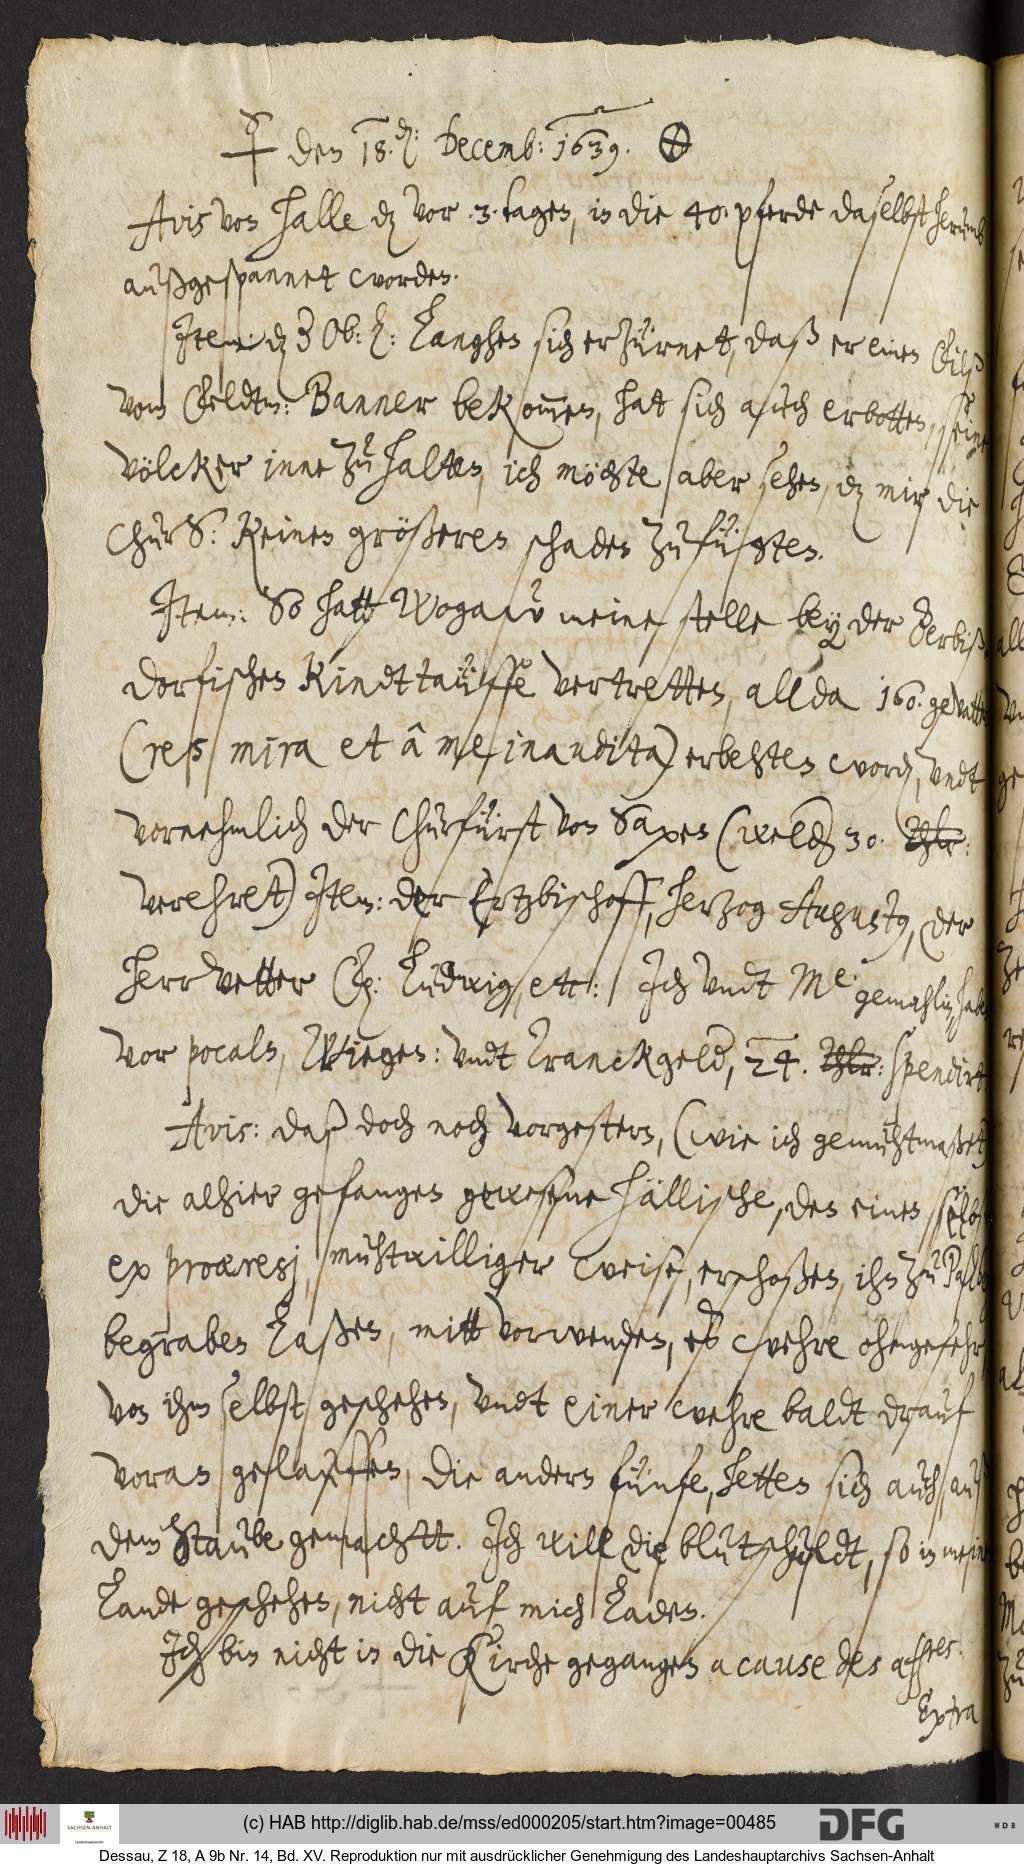 ☿ den 18. xbr: Decemb: 1639. ⊕
Avis von Halle dz vor .3. tagen, in die 40. pferde daselbst herumb
außgespannet worden.
Item: dz Ob: L: Langhen sich erzürnet, daß er einen
vom Feldtm: Banner bekommen, hat sich auch erbotten, seine
völcker inne zu halten, ich möchte aber sehen, dz mir die
ChurS: keinen größeren schaden zufügten.
Item: So hatt Wogaw meine stelle bey der Zerbiß-
dorfischen Kindttauffe vertretten, allda 160. gevatt
(res mira et â me inaudita) erbehten word, undt
vornehmlich der Churfürst von Saxen (welch 30. Thlr:
verehret) Item: der Ertzbischoff, Herzog Augustg, der
Herr vetter F: Ludwig, ett: Ich undt Me. gemahlin, habe
vor pocaln, Wiegen: undt Tranckgeld, 24. Thlr: spendirt
Avis: daß doch noch vorgestern, (wie ich gemuhtmaßet)
die alhier gefangen gewesene Hällische, den einen selbst
ex proæresj, muhtwilliger weise, erschoßen, ihn zu Palb
begraben Laßen, mitt vorwenden, es wehre ohngefehr
von ihm selbst geschehen, undt einer wehre baldt drauf
voran geslauffen, die andern fünfe, hetten sich auch, auß
dem Staube gemachtt. Ich will die blutschuldt, so in mein
Lande geschehen, nicht auf mich Laden.
Ich bin nicht in die Kirche gegangen a cause des affres.
Extra
(c) HAB http://diglib.hab.de/mss/ed000205/start.htm?image=00485
SACHSEN-ANHALT
Landeshauptarchiv
DFG
WDB
Dessau, Z 18, A 9b Nr. 14, Bd. XV. Reproduktion nur mit ausdrücklicher Genehmigung des Landeshauptarchivs Sachsen-Anhalt